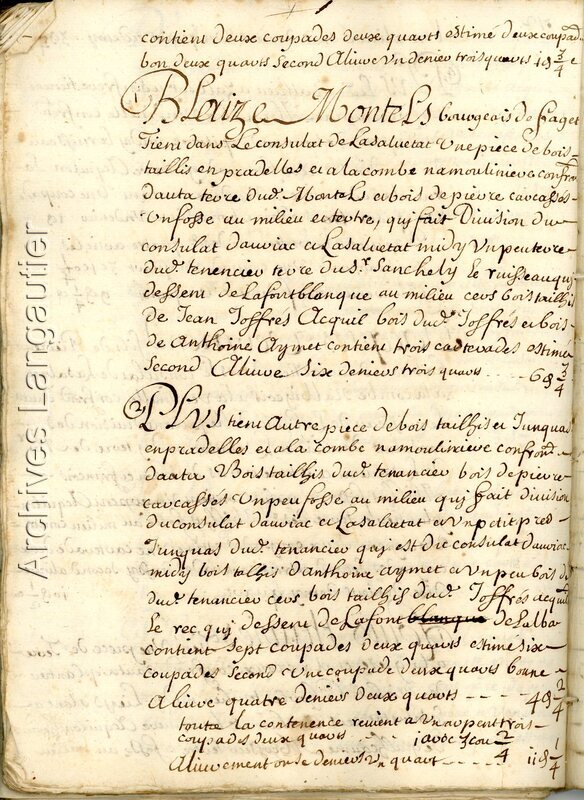 contient deux coupades deux quarts estimé deux coupad
bon deux quarts second Aliuve Un denier trois quarts 1δ 3/4
Blaize Montels bourgeois de fraget
Tient dans Le consulat de Lasaluetat Une piece de bois
taillis en pradelles et a la combe namouliniere confron
dauta terre dud. Montels et bois de pierre carcasses
Un fosse au milieu et tertre, quj fait Division du
consulat dauriac et Lasaluetat midy Un peu terre
dud. tenancier terre du Sr. Sanchely le ruisseau quj
dessent de Lafontblanque au milieu cers bois tailhis
de Jean Joffrés Acquil bois dud. Joffrés et bois
de Anthoine Aymet contient trois cartevades estimé
Second Aliuve Six deniers trois quars ---- 6δ 3/4
PLUS tient Autre piece de bois tailhis et Junquas
en pradelles et a la combe namouliniere confront.
daata Bois tailhis dud. tenancier bois de pierre
carcasses Un peu fosse au milieu quj fait division
du consulat dauriac et Lasaluetat et Un potit pred
Junquas dud. tenancier quj est dic consulat dauriac
midy bois talhis danthoine aymet et Un peu bois
dud. tenancier cers bois tailhis dud. Joffrés acquil
Le rec quj dessent de Lafont blanque de Lalba
contient sept coupades deux quarts estimé six
coupades second et Une coupade deux quarts bonne
Aliuve quatre deniers deux quarts ---- 4δ 2/4
toute la contenence revient a Un arpent trois
coupades deux quars 1 arpt 3 cou 2/4
Aliuvement onse deniers Un quart ---- 11δ 1/4
Archives Langautier